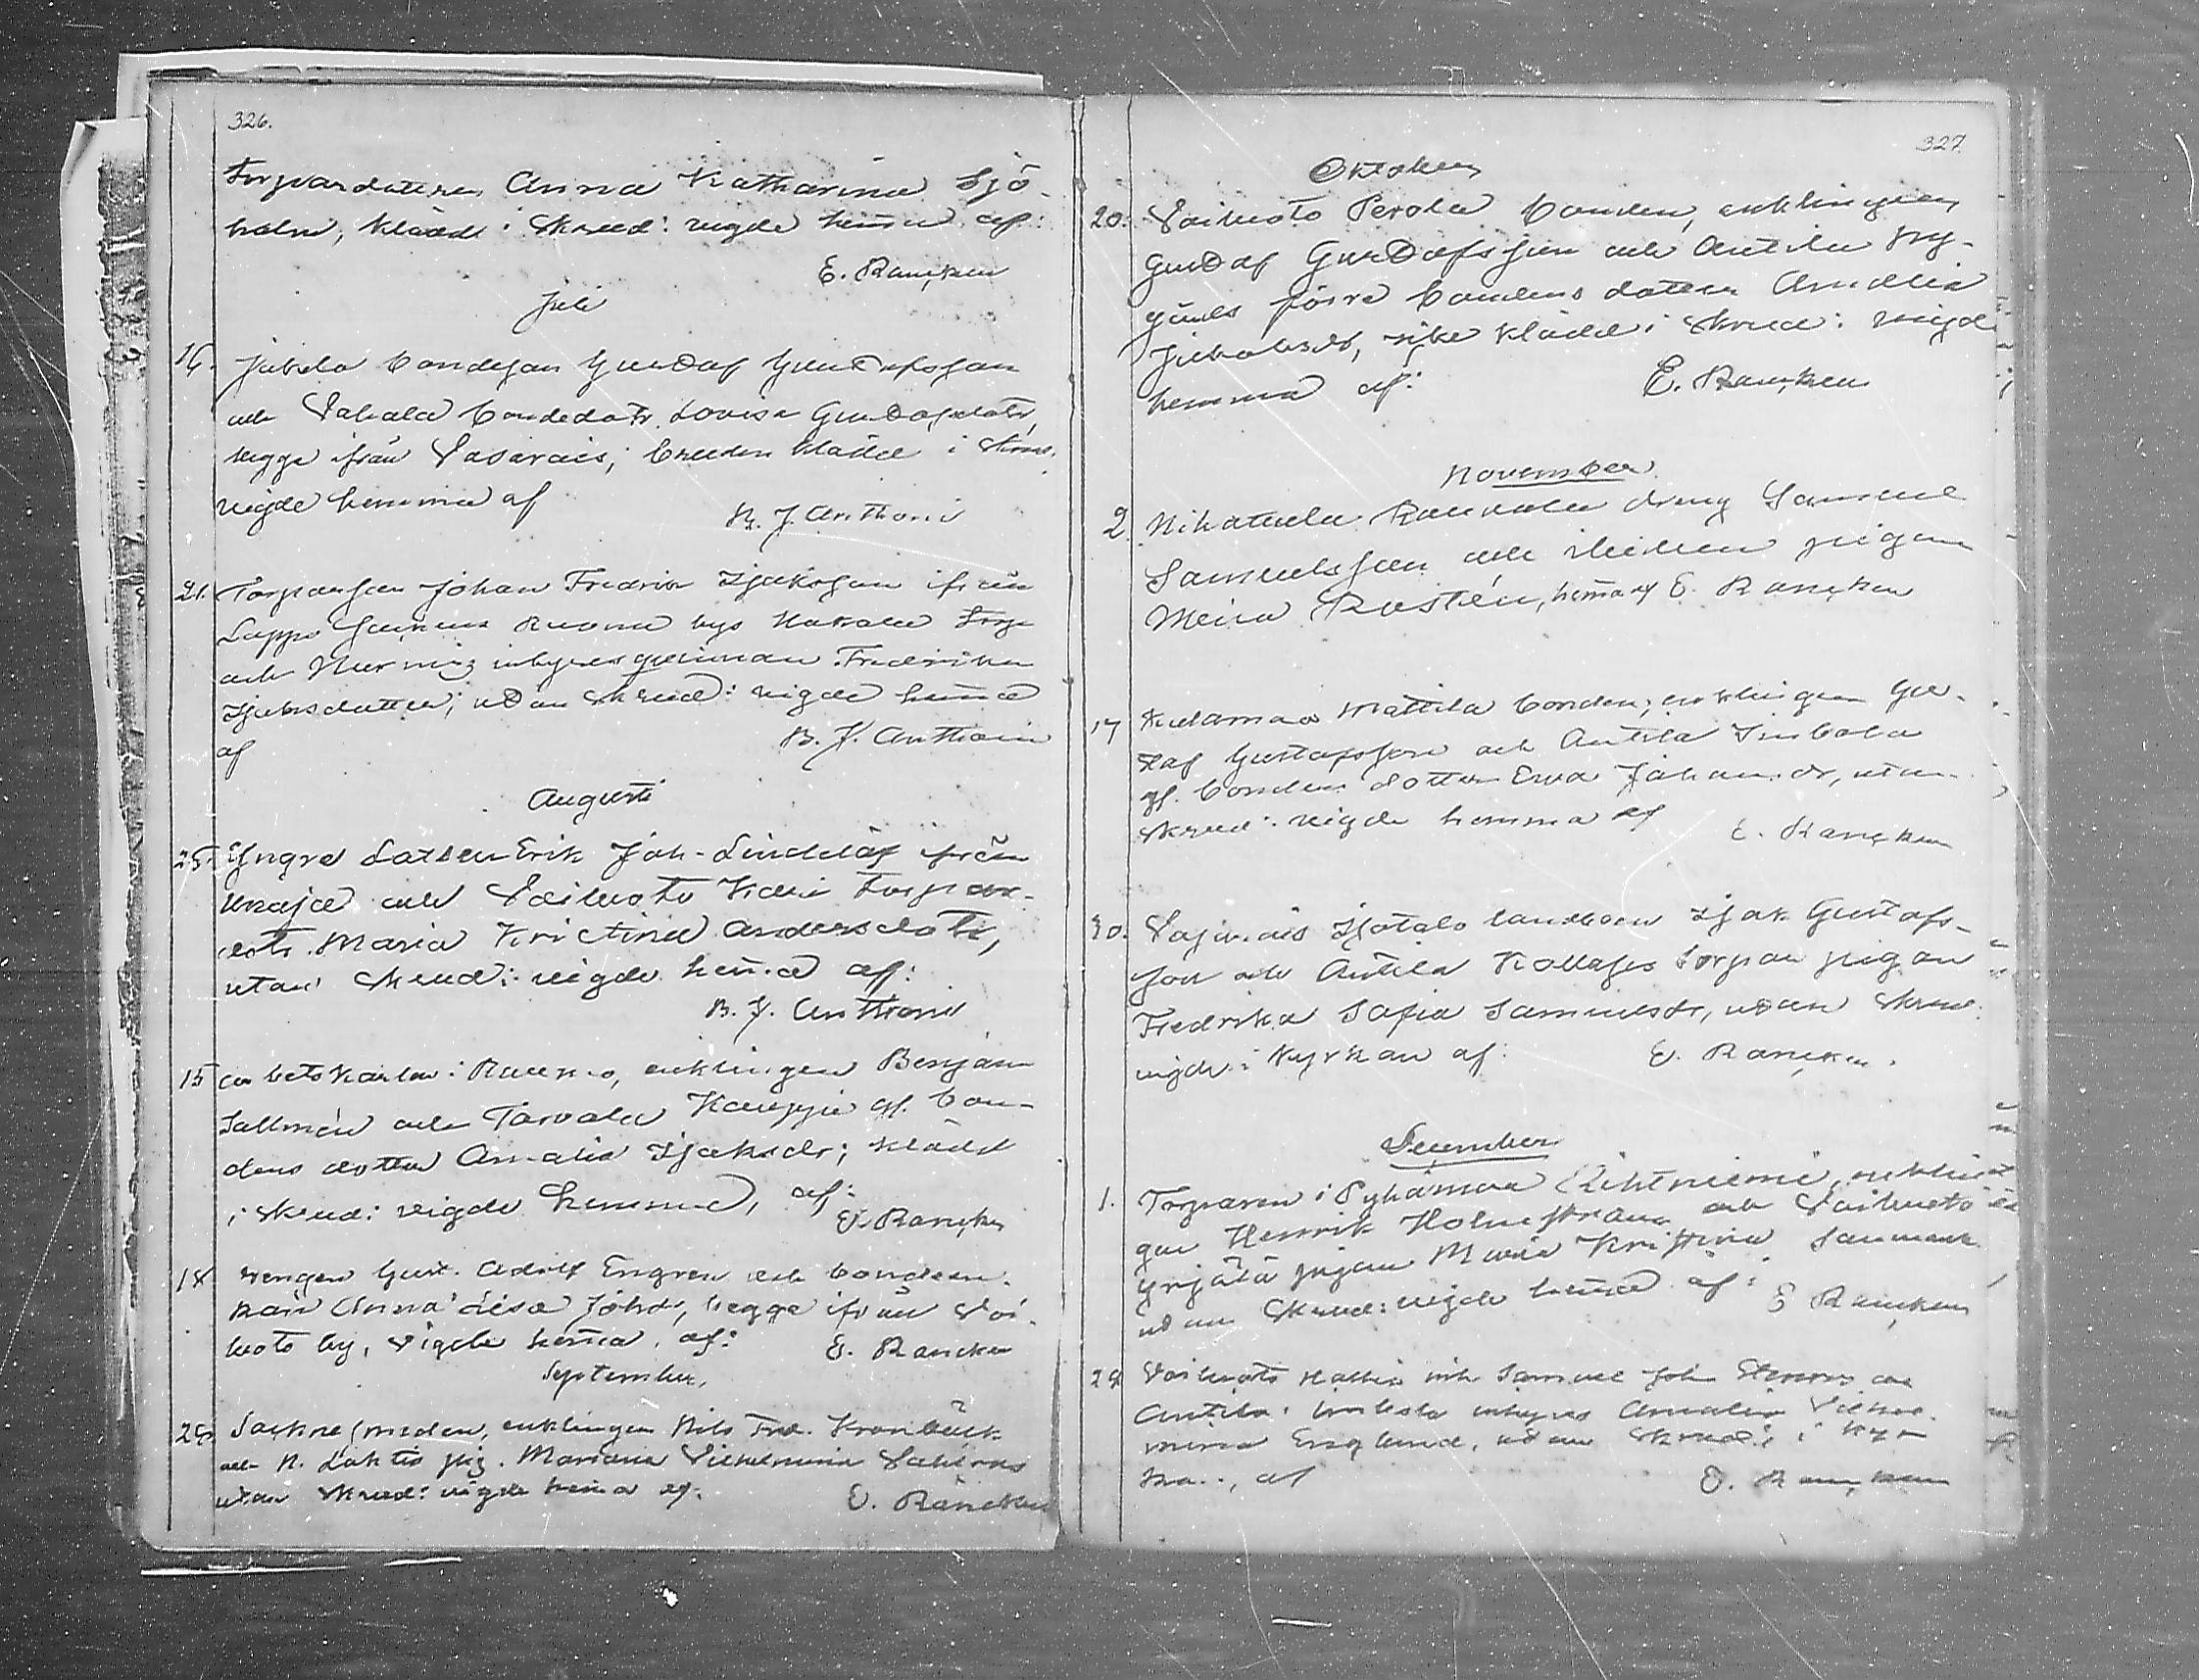 326.
Torpardottren Anna Katharina Sjö-
holm, klädd i skrud: vigde hemma af:
E. Rancken
Juli
16. Jubela bondeson Gustaf Gustafsson
och Vahala bondedotr. Lovisa Gustafsdotr,
begge ifrån Vasarais; bruden klädd i skrud.
vigde hemma af
B. J. Anthoni
21. Torparson Johan Fredrik Isaksson ifrån
Lappi socken Ruona bys torp
och inhyses qvinnan Fredrika
Isaksdotter; utan skrud: vigde hemma
af
B. J. Anthoni
Augusti
25. Yngre Lotsen Erik Joh. Lindelöf ifrån
Unaja och Voiluoto torpare
dotr. Maria Kristina Andersdotr,
utan skrud: vigde hemma af:
B. J. Anthoni
15 arbetskarlen i Raumo, enklingen Benjam
Sallmén och Tarvola Kauppi gf. bon-
dens dotter Amalia Isaksdr; klädd
i skrud: vigde hemma, af:
E. Rancken
18 drengen Gust. Adolf Engren och bondeen-
kan Anna Lisa Johdr, begge ifrån Voi-
luoto by, vigde hemma, af: E. Rancken
September.
28. Sockne smeden, enklingen Nils Fred. Kronbäck
och N. pig. Mariana Vilhelmina
utan skrud: vigde hemma af: E. Rancken
327.
Oktober
20. Voiluoto Perola bonden, enklingen
Gustaf Gustafsson och Antila
förre bondens dotter Amalia
Jakobsdr, icke klädd i skrud: vigde
hemma af: E. Rancken
November
2. Nihattula dreng Samuel
Samuelsson och pigan
Rostén, hemma af E. Rancken
17 Kulamaa Mattila bonden, enklingen Gu-
staf Gustafsson och Antila
gf. bondens dotter Eva Johansdr, utan
skrud: vigde hemma af
E. Rancken
30. Vasarais landbonden Isak Gustafs-
son och Antila torpar pigan
Fredrika Sofia Samuelsdr, utan skrud:
vigde i kyrkan af: E. Rancken.
December
1. Torparen i Pyhämaa Rihtniemi enklin
gen Henrik Holmstrand och Voiluoto
Yrjälä pigan Maria Kristina
utan skrud: vigde hemma af: E Rancken
28 Voiluoto Samuel Joh.
Antila inhyses Amalia Vilhel-
mina Englund, utan skrud: i kyr-
kan, af E. Rancken